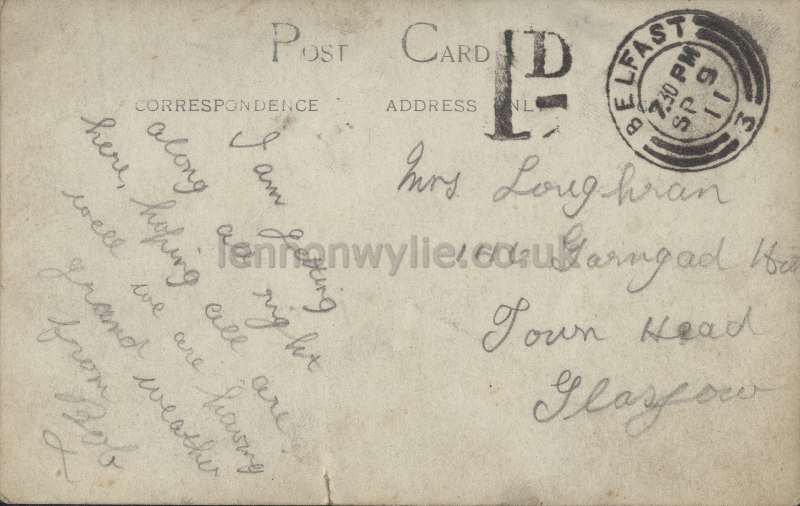 POST CARD
1D
BELFAST
7.30 PM
SP 9
11
3
CORRESPONDENCE
ADDRESS ONLY
I am getting
along all right
here, hoping all are
well we are having
grand weather
from Bob
x.
Mrs Loughran
Garngad
Town Head
Glasgow
lennonwylie.co.uk